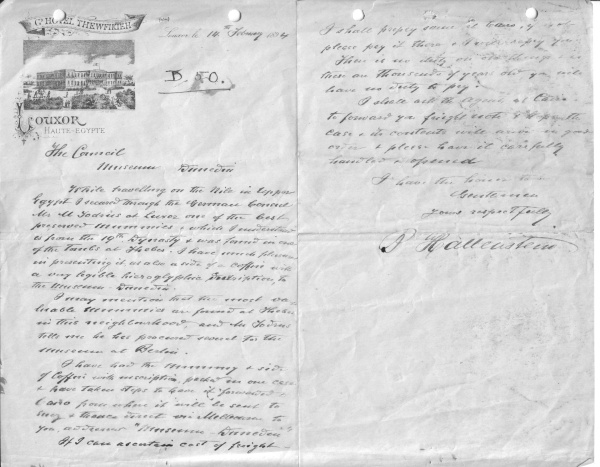 Gd HOTEL THEWFIKIEH
LOUXOR
HAUTE-EGYPTE
14th February
B. FO.
The Council
Museum Dunedin
While travelling on the Nile in Upper
Egypt I secured through the German Consul
Mr M Todrous at Luxor one of the best
preserved Mummies & which I understand
is from the 19th Dynasty & was found in one
of the tombs at Thebes. I have much pleasure
in presenting it as also a side of a coffin with
a very legible hieroglyphic Inscription, to
the Museum Dunedin.
I may mention that the most valuable
Mummies are found at Thebes
in this neighbourhood, and Mr Todrous
tells me he has procured several for the
Museum at Berlin.
I have had the Mummy & side
of Coffin with inscription packed in one case
& have taken steps to have it forwarded to
Cairo from where it will be sent to
Suez & thence direct via Melbourne to
you, addressed "Museum Dunedin"
If I can ascertain cost of freight
I shall prepay same at Cairo, if not
please pay it there & I will repay you.
There is no duty on old things &
these are thousands of years old you will
have no duty to pay.
I shall ask the Agent at Cairo
to forward you freight note & I hope the
case & its contents will arrive in good
order & please have it carefully
handled & opened
I have the honor to be
Gentlemen
Yours respectfully
B Hallenstein